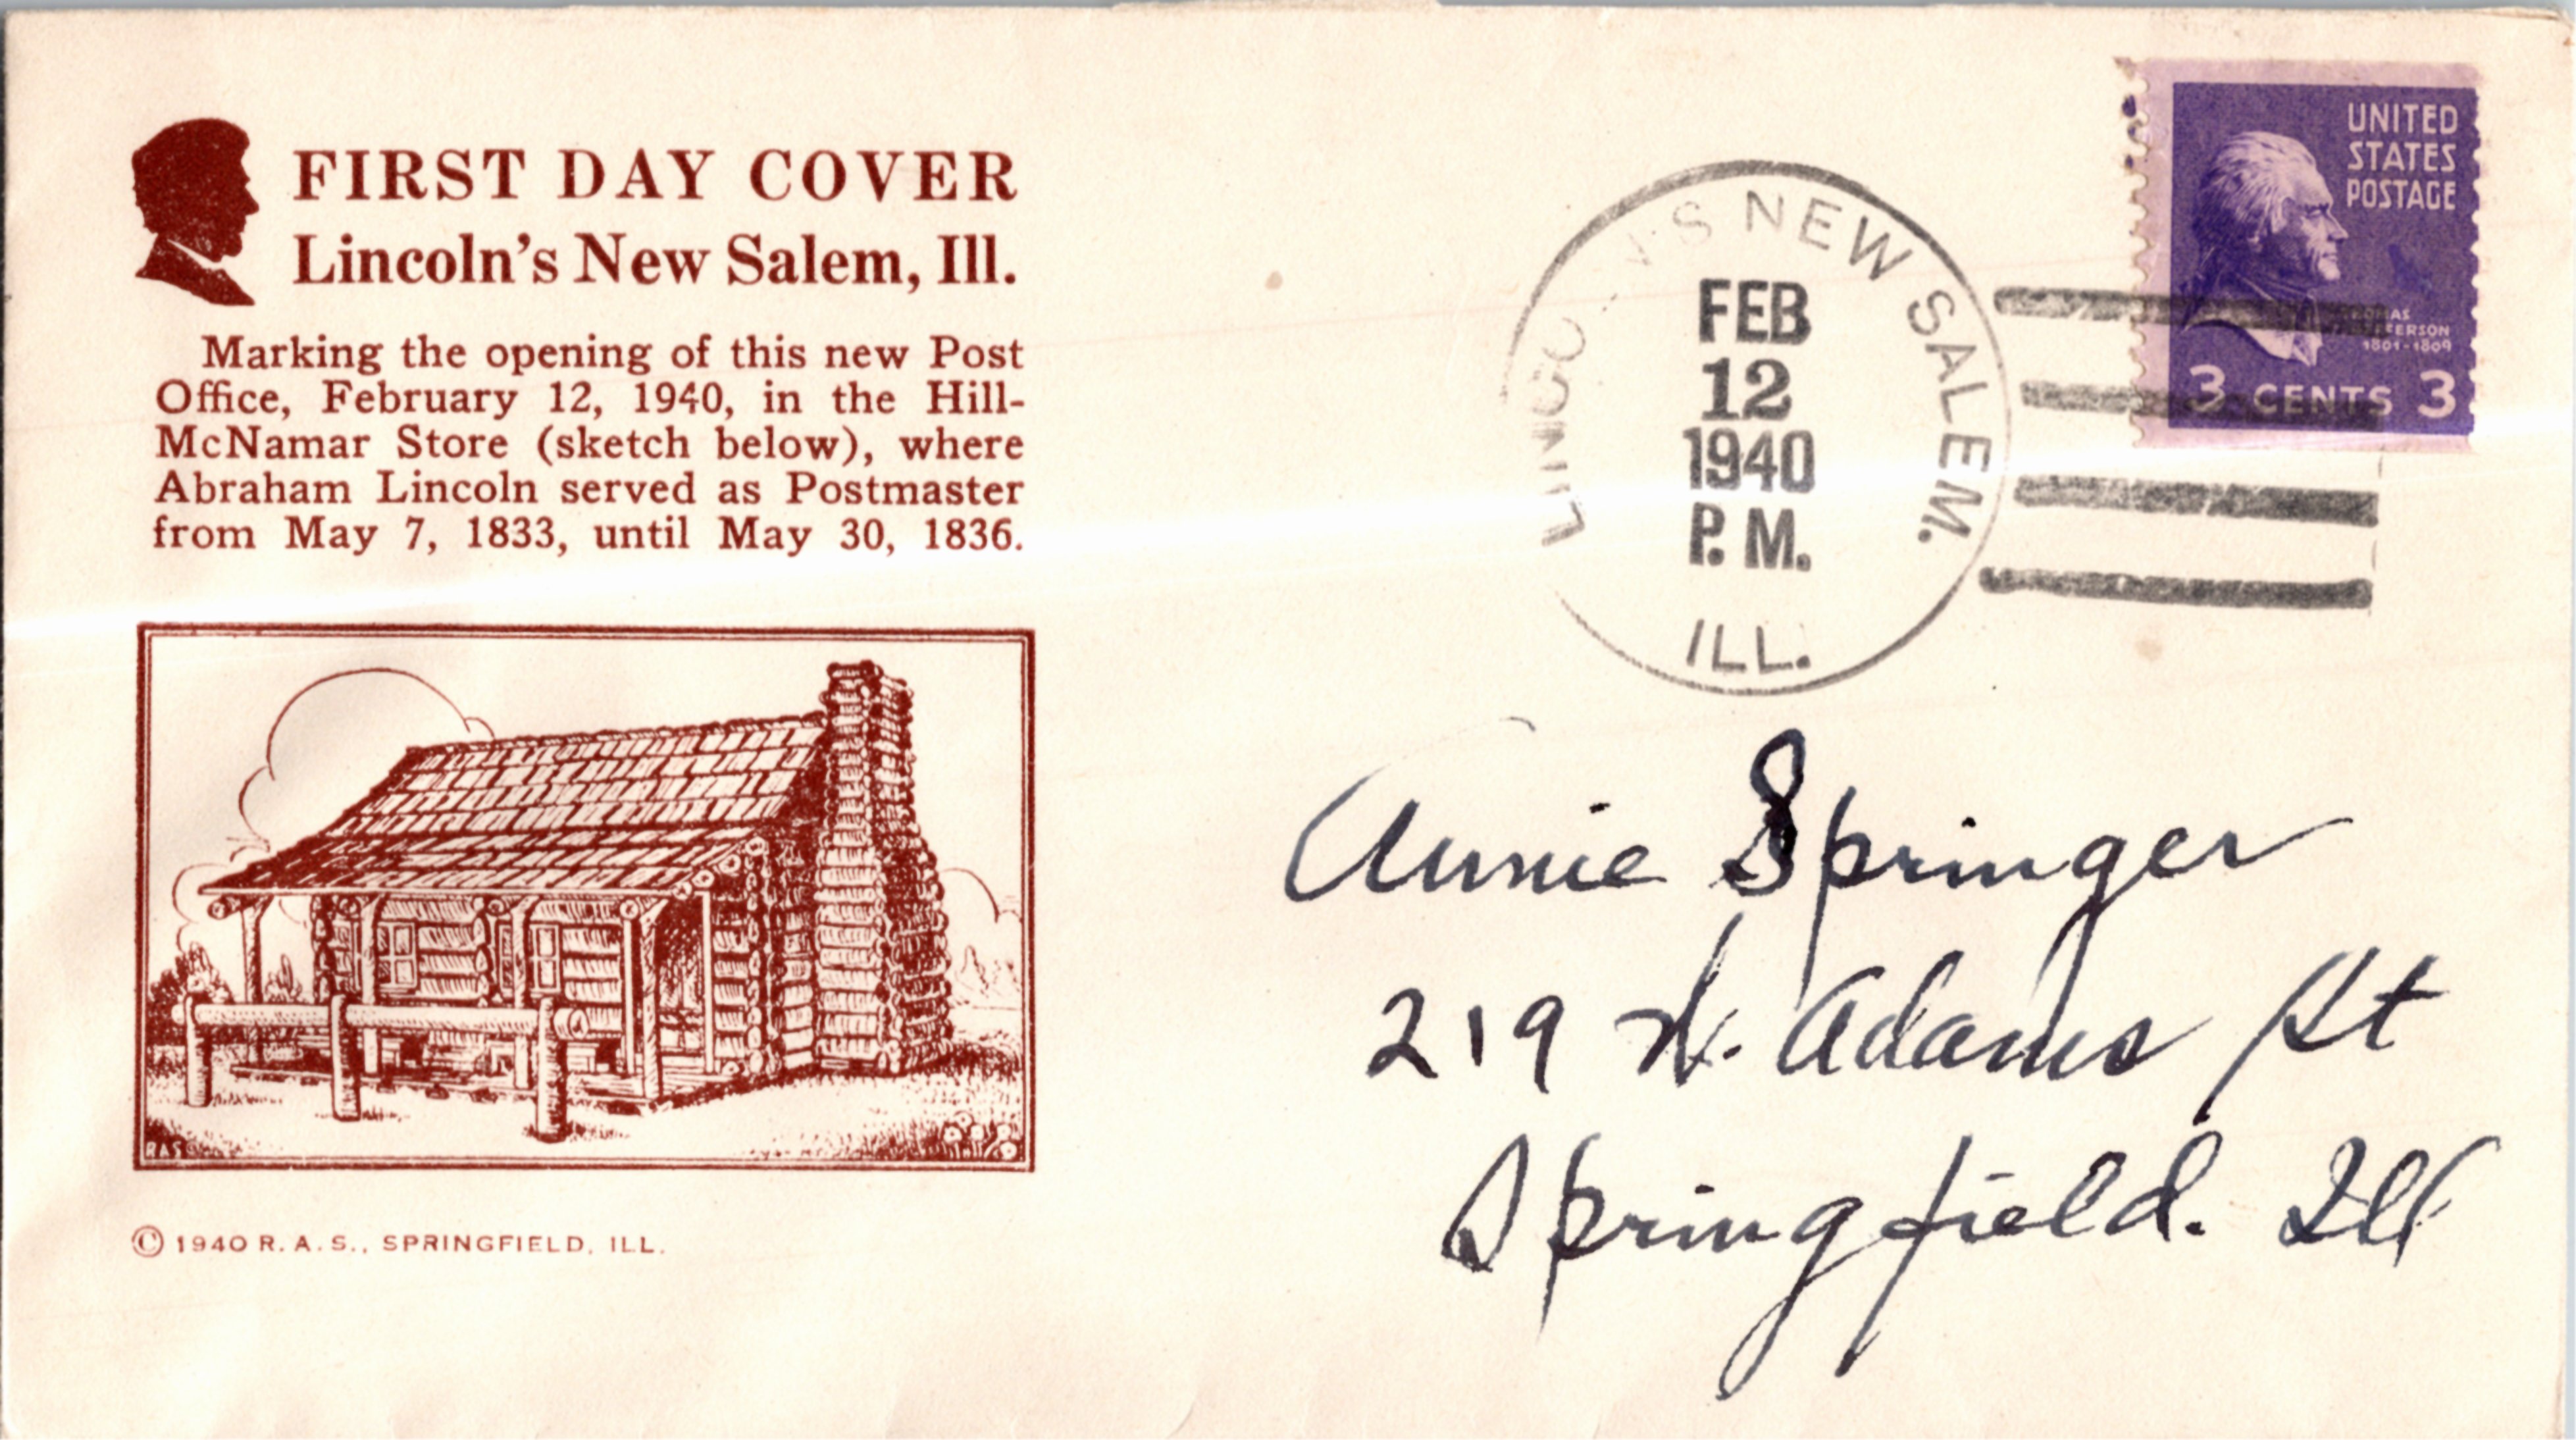 FIRST DAY COVER
Lincoln's New Salem, Ill.
Marking the opening of this new Post
Office, February 12, 1940, in the Hill-
McNamar Store (sketch below), where
Abraham Lincoln served as Postmaster
from May 7, 1833, until May 30, 1836.
RAS
© 1940 R. A. S., SPRINGFIELD, ILL.
NEW SALEM.
FEB
12
1940
P. M.
ILL.
UNITED
STATES
POSTAGE
1801-1809
3 CENTS 3
Annie Springer
219 W. Adams St
Springfield. Ill